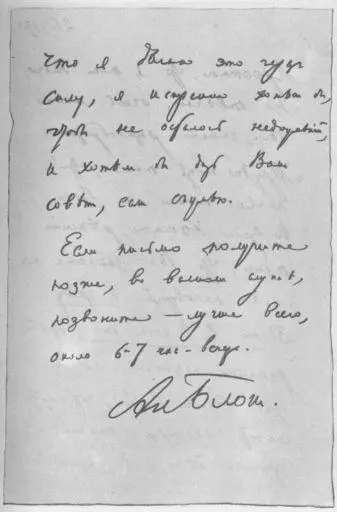 что я делаю это чрез
силу, я искренно хотел бы,
чтобы не осталось недоумений,
и хотел бы дать Вам
совет, если сумею.
Если письмо получите
позже, во всяком случае,
позвоните — лучше всего,
около 6-7 час. вечера.
Ал. Блок.